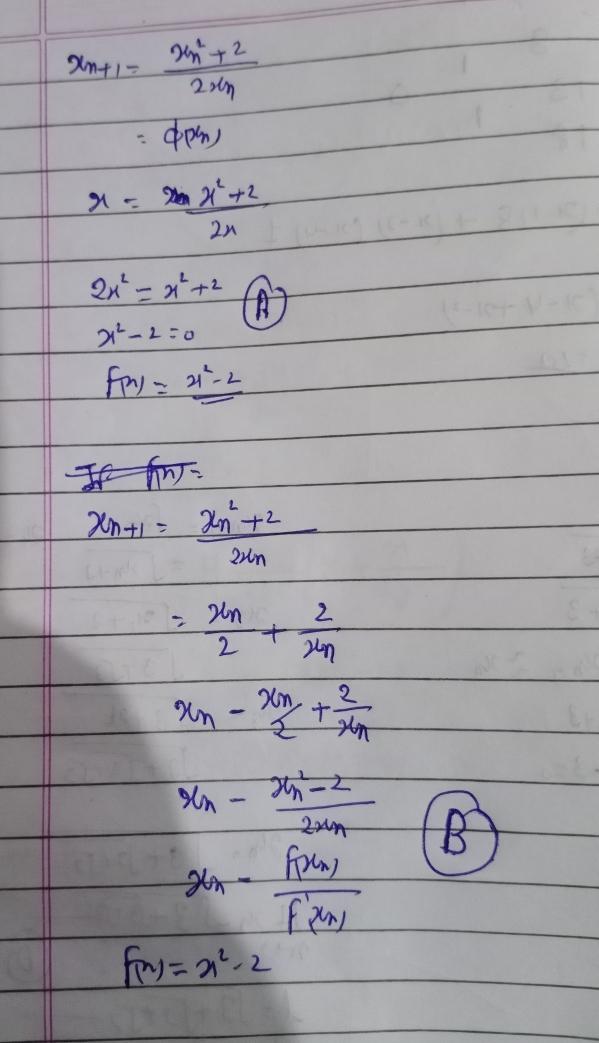 xn+1 = xn² + 2 / 2xn
= ϕ(xn)
x = x² + 2 / 2x
2x² = x² + 2
A
x² - 2 = 0
f(x) = x² - 2
If f(x) =
xn+1 = xn² + 2 / 2xn
= xn / 2 + 2 / xn
xn - xn / 2 + 2 / xn
xn - xn² - 2 / 2xn
B
xn - f(xn) / f'(xn)
f(x) = x² - 2